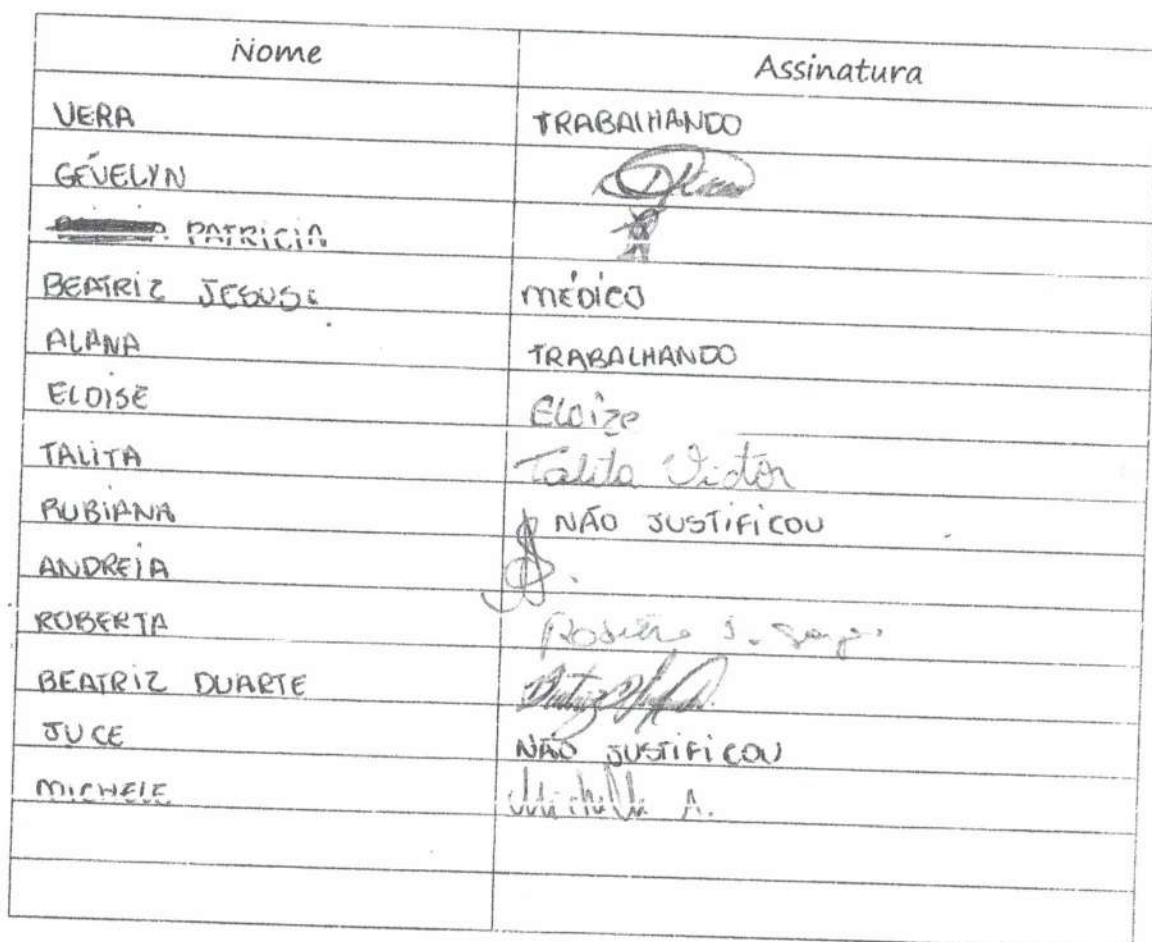 Nome Assinatura
VERA TRABALHANDO
GÉVELYN
PATRICIA
BEATRIZ JESUS MÉDICO
ALANA TRABALHANDO
ELOISE Eloize
TALITA Talita Victor
RUBIANA NÃO JUSTIFICOU
ANDREIA
ROBERTA
BEATRIZ DUARTE
JUCE NÃO JUSTIFICOU
MICHELE Michelle A.